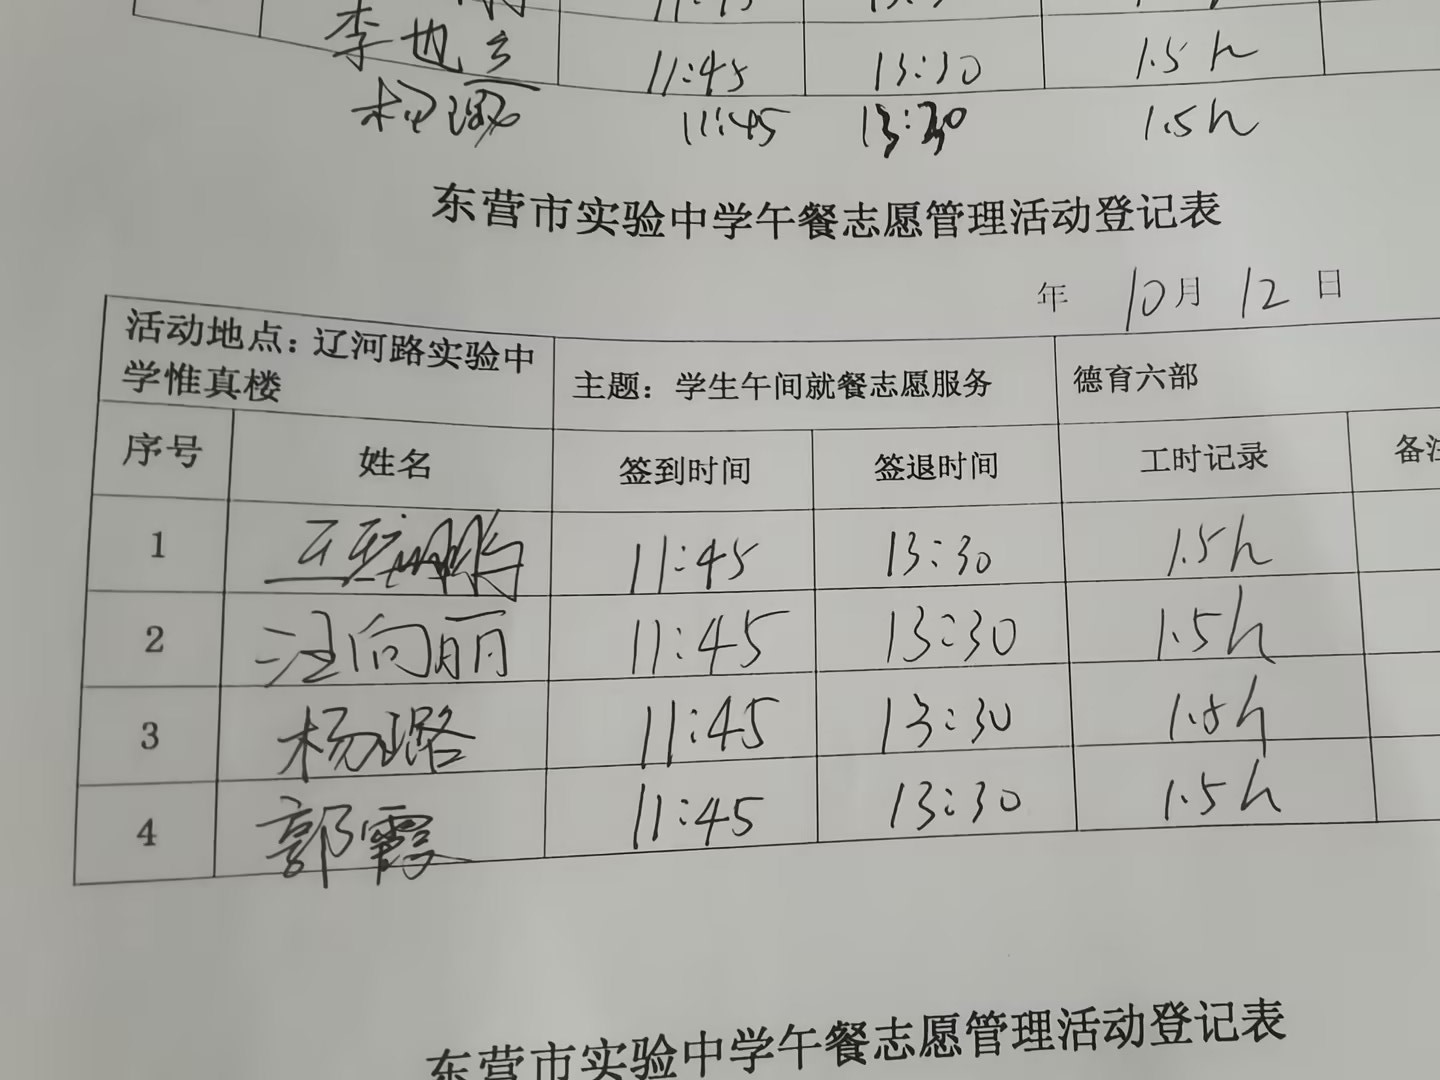 李也 11:45 13:30 1.5h
杨璐 11:45 13:30 1.5h
东营市实验中学午餐志愿管理活动登记表
年 10月 12 日
活动地点：辽河路实验中学惟真楼 主题：学生午间就餐志愿服务 德育六部
序号 姓名 签到时间 签退时间 工时记录 备注
1 11:45 13:30 1.5h
2 汪向丽 11:45 13:30 1.5h
3 杨璐 11:45 13:30 1.5h
4 郭霞 11:45 13:30 1.5h
东营市实验中学午餐志愿管理活动登记表